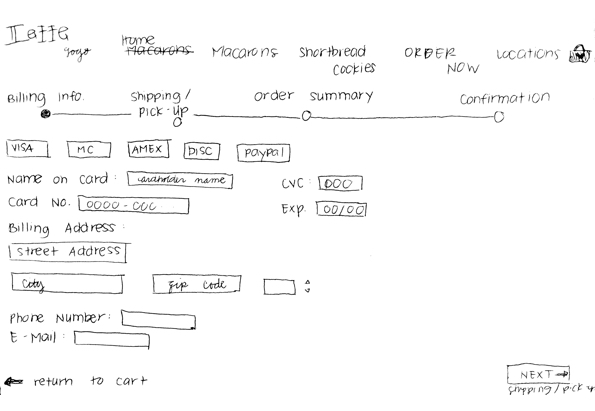 Lette
Home
Macarons Macarons Shortbread Cookies ORDER NOW Locations
Billing info. Shipping/ Pick-up Order Summary Confirmation
VISA MC AMEX DISC PayPal
Name on Card: cardholder name CVC: 000
Card No. 0000-000 Exp. 00/00
Billing Address:
Street Address
City Zip Code
Phone Number:
E-Mail:
← return to cart NEXT →
shipping/pick u